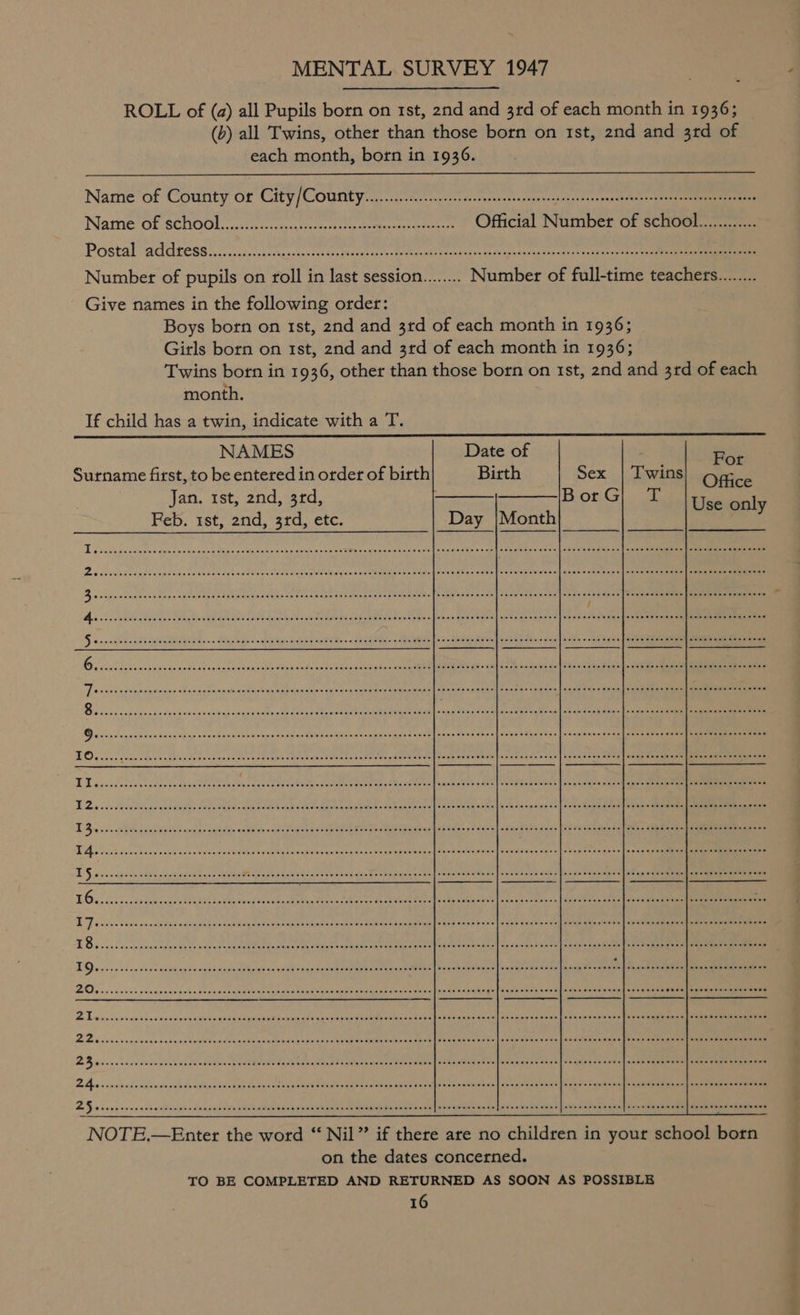 MENTAL SURVEY 1947
ROLL of (a) all Pupils born on 1st, 2nd and 3rd of each month in 1936;
(b) all Twins, other than those born on 1st, 2nd and 3rd of
each month, born in 1936.
Name of County or City/County..........
Name of school.......... Official Number of school..........
Postal address..........
Number of pupils on roll in last session........ Number of full-time teachers........
Give names in the following order:
Boys born on 1st, 2nd and 3rd of each month in 1936;
Girls born on 1st, 2nd and 3rd of each month in 1936;
Twins born in 1936, other than those born on 1st, 2nd and 3rd of each
month.
If child has a twin, indicate with a T.
NAMES
Surname first, to be entered in order of birth
Jan. 1st, 2nd, 3rd,
Feb. 1st, 2nd, 3rd, etc.
Date of
Birth
Day Month
Sex
B or G
Twins
T
For
Office
Use only
1..........
2..........
3..........
4..........
5..........
6..........
7..........
8..........
9..........
10..........
11..........
12..........
13..........
14..........
15..........
16..........
17..........
18..........
19..........
20..........
21..........
22..........
23..........
24..........
25..........
NOTE.—Enter the word “Nil” if there are no children in your school born
on the dates concerned.
TO BE COMPLETED AND RETURNED AS SOON AS POSSIBLE
16